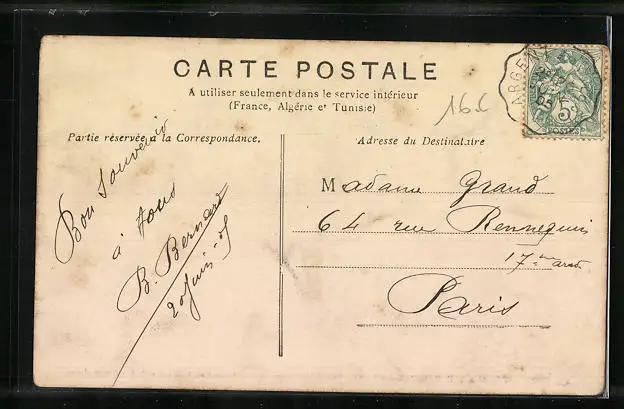 CARTE POSTALE
A utiliser seulement dans le service intérieur
(France, Algérie et Tunisie)
16 C
ARGEN
05
5
POSTES
Partie réservée à la Correspondance.
Adresse du Destinataire
Bon Souvenir
à tous
B. Bernard
20 Juin - 05
Madame Grand
64 rue Rennequin
17ème arrd
Paris